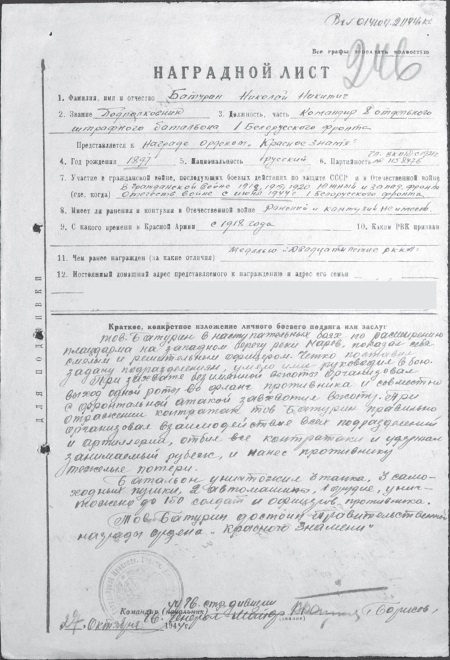 Все графы заполнять полностью
246
НАГРАДНОЙ ЛИСТ
1. Фамилия, имя и отчество Батурин Николай Никитич
2. Звание Подполковник 3. Должность, часть Командир 8 отдельного
штрафного батальона 1 Белорусского фронта
Представляется к Награде орденом "Красное знамя"
4. Год рождения 1897 5. Национальность русский 6. Партийность
7. Участие в гражданской войне, последующих боевых действиях по защите СССР и в Отечественной войне
(где, когда) В Гражданской войне 1918, 1919, 1920 Южный и запад. фронты
Отечеств. войне с июня 1944 г. 1 Белорусского фронта.
8. Имеет ли ранения и контузии в Отечественной войне Ранений и контузий не имеет
9. С какого времени в Красной Армии с 1918 года 10. Каким РВК призван
11. Чем ранее награжден (за какие отличия) Медалью РККА"
12. Постоянный домашний адрес представляемого к награждению и адрес его семьи
ДЛЯ ПОДШИВКИ
Краткое, конкретное изложение личного боевого подвига или заслуг
Тов. Батурин в наступательных боях по расширению
плацдарма на западном берегу реки Нарев, показал себя
смелым и решительным офицером. Четко поставил
задачу подразделениям, умело ими руководил в бою.
При захвате безымянной высоты организовал
выход одной роты во фланг противника и совместно
с фронтальной атакой захватил высоту. При
отражении контратак тов. Батурин правильно
организовал взаимодействие всех подразделений
и артиллерии, отбил все контратаки и удержал
занимаемый рубеж, и нанес противнику
тяжелые потери.
Батальон уничтожил танка, 3 само-
ходных пушки, 2 автомашины, 1 орудие, унич-
тожено до 150 солдат и офицеров противника.
Тов. Батурин достоин Правительственной
награды ордена "Красного Знамени"
Командир (начальник) стр. дивизии
Генерал Майор (Борисов)
27 Октября 194 г.